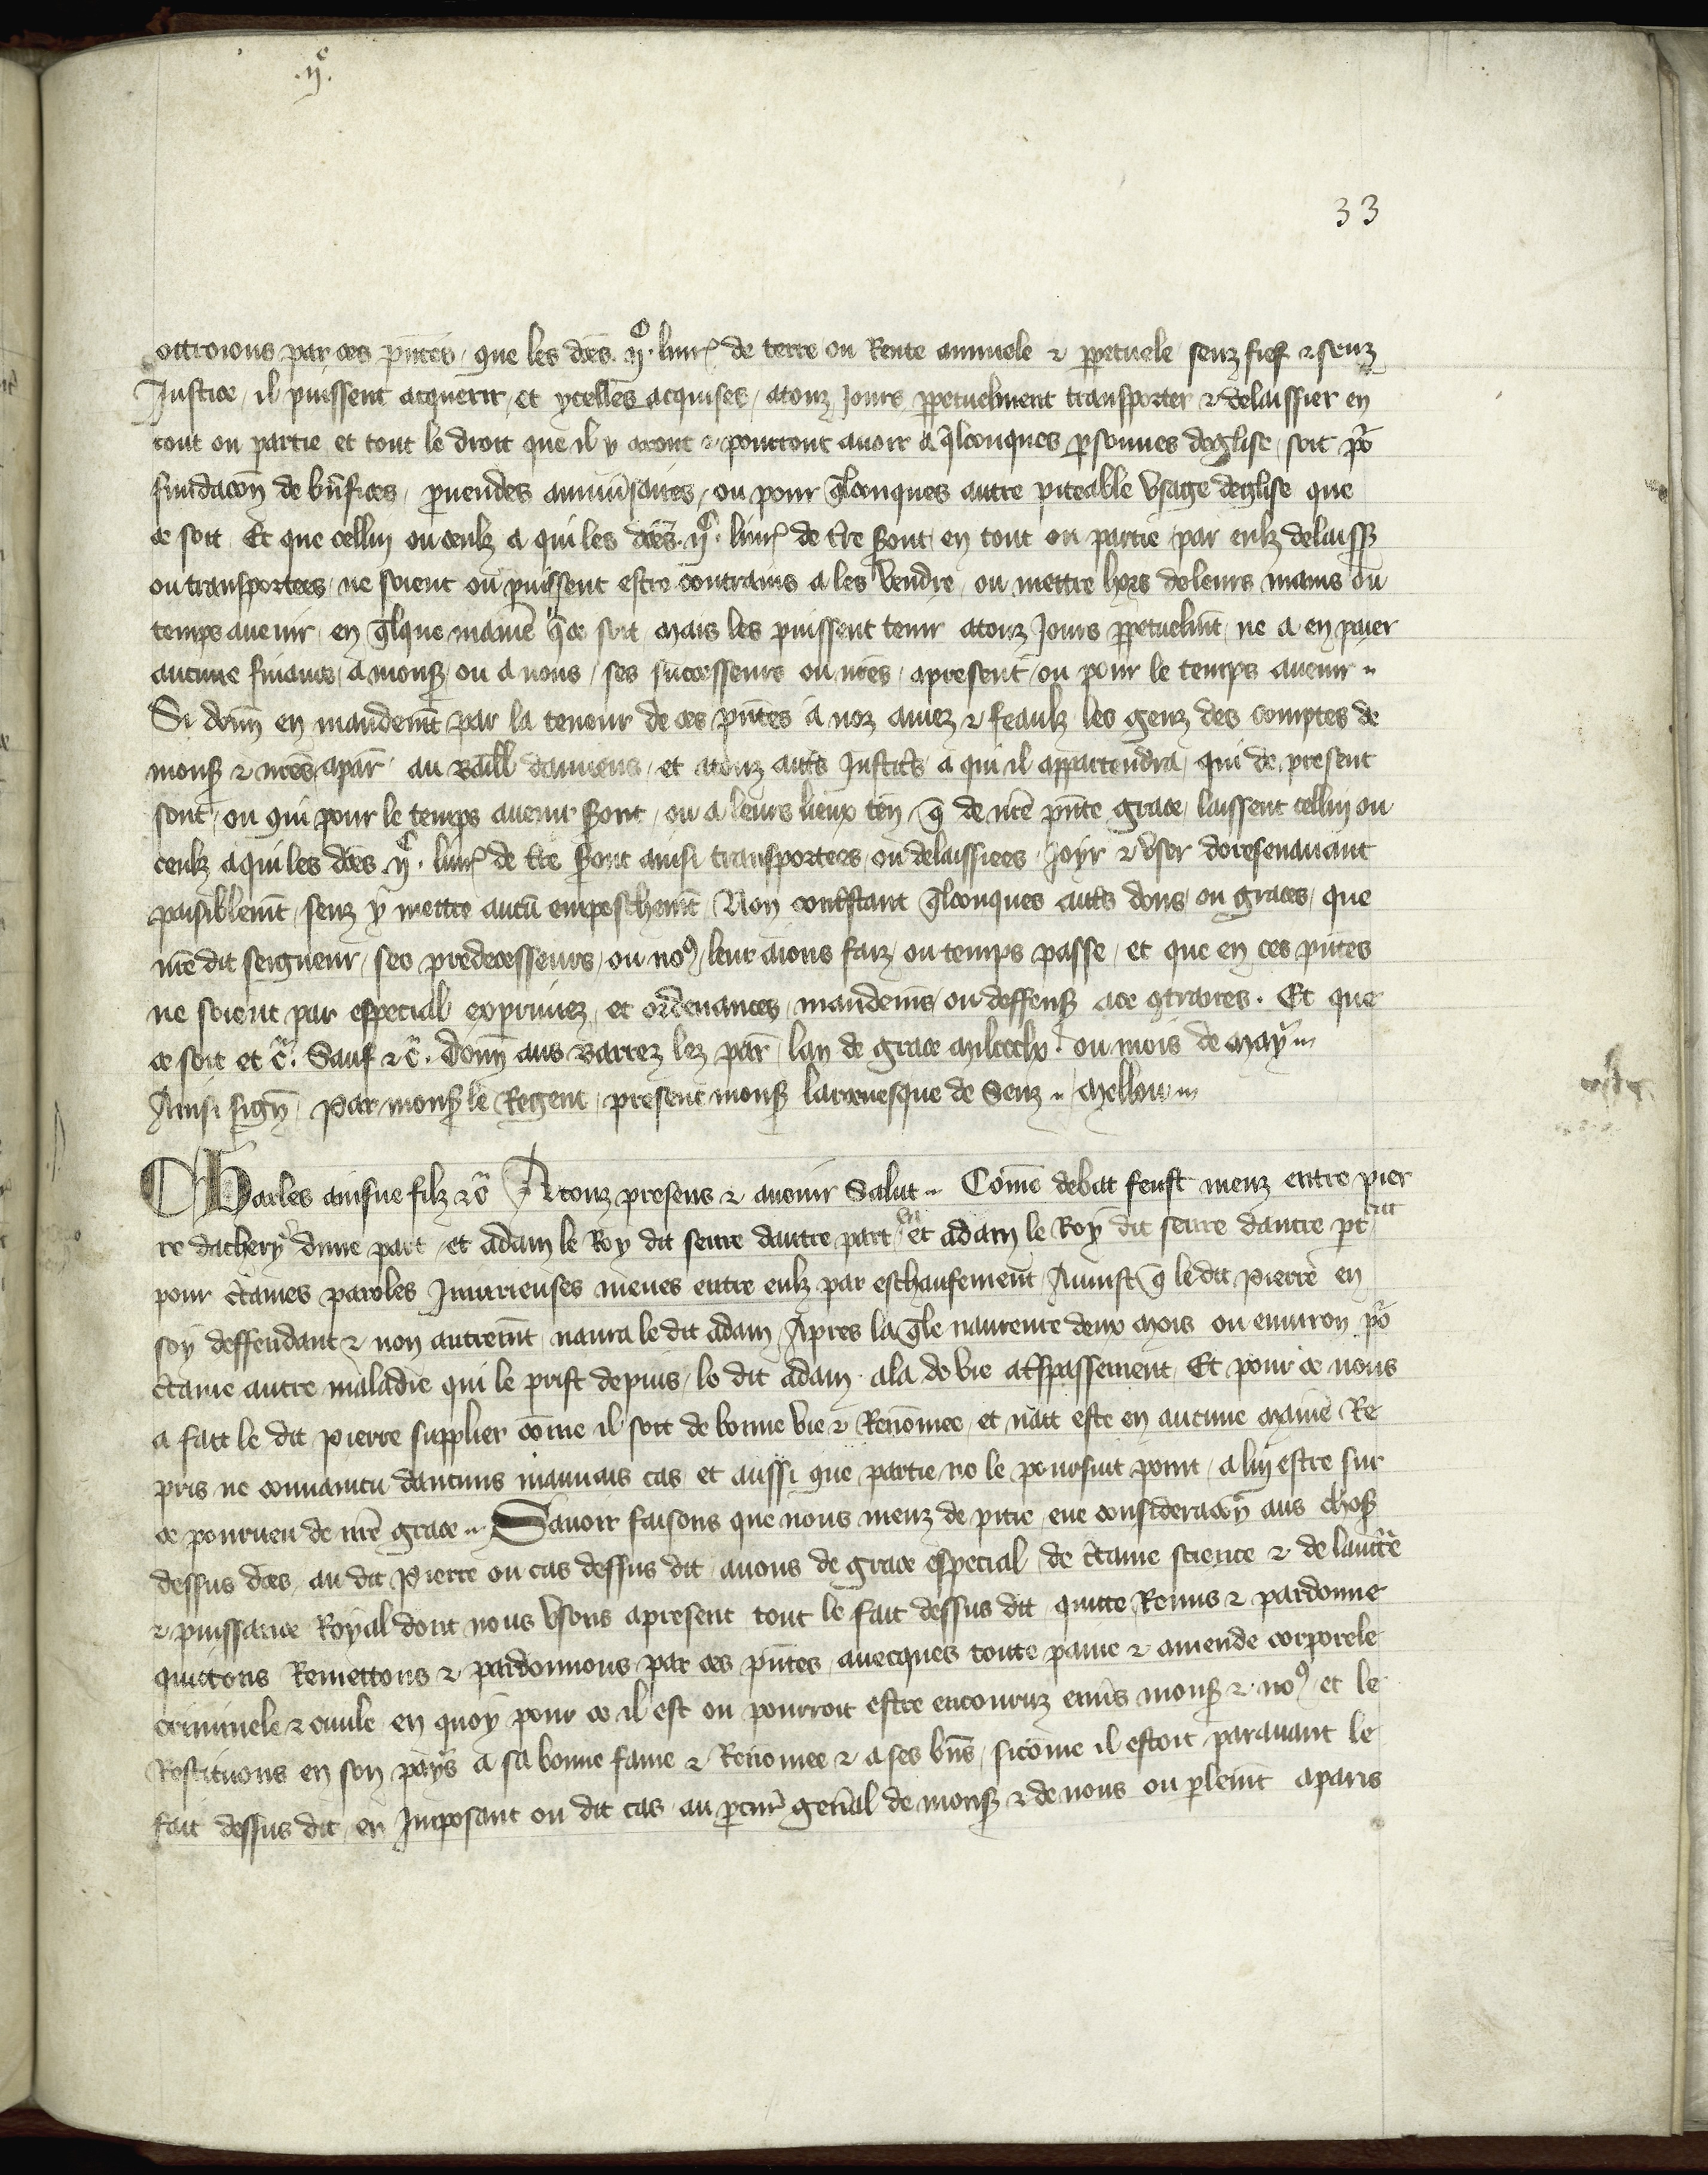 .ijᶜ.
33
ottroions par ces pñtes / que les dc̃es .ijᶜ. liur̃ de terre ou Rente annuele ⁊ ꝑpetuele senz fief ⁊ senz
Justice / il puissent acquerir / et ycelles acquises / atouz jours ꝑpetuelment transporter ⁊ delaissier en
tout ou partie et tout le droit que il y auront ⁊ pourront auoir a q̃lconques ꝑsonnes deglise / soit po᷑
fundac̃on de bñfices / prouendes anniũsaires / ou pour q̃lconques autre piteable vsage deglise que
ce soit Et que celluy ou ceulz a qui les dc̃es .ijᶜ. liur̃ de t̃re s̃ont en tout ou partie par eulz delaiss̃
ou transportees / ne soient ou puissent estre contrains a les vendre / ou mettre hors de leurs mains ou
temps auenir / en q̃lque manie᷑ q̃ ce soit / mais les puissent tenir atouz jours ꝑpetuelm̃t / ne a en paier
aucune finance / a mons̃ / ou a nous / ses successeurs ou nr̃es / apresent / ou pour le temps auenir ..
Si donñ en mandemẽt par la teneur de ces pñtes a noz amez ⁊ feaulz les genz des comptes de
mons̃ ⁊ nr̃es apar̃ / au Baill̃ damiens / et atouz aut̃s Justic̃s a qui il appartendra / qui de present
sont / ou qui pour le temps auenir s̃ont / ou a leurs lieux teñ / q̃ de nr̃e pñte grace / laissent celluy ou
ceulz a qui les dc̃es .ijᶜ. liur̃ de t̃re s̃ont ainsi transportees ou delaissiees / Joyr ⁊ vser doresenauant
paisiblem̃t / senz y mettre aucũ empeschem̃t / Non cont̃stant q̃lconques aut̃s dons / ou graces / que
nr̃e dit seigneur / ses predecesseurs / ou noꝰ / leur aions faiz / ou temps passe / et que en ces pñtes
ne soient par especial exprimez / et ordenances / mandem̃s / ou deffens̃ a ce ꝯtraires . Et que
ce soit et c̃. Sauf ⁊ c̃. donñ aus Barrez lez par̃ / lan de grace mil ccclx . ou mois de May ...
Ainsi signe᷑ / Par mons̃ le Regent / present mons̃ larceuesque de Senz .. / Mellou ...
CHarles ainsne filz ⁊c̃ / Atouz presens ⁊ auenir Salut .. Com̃e debat feust meuz entre pier
re dachery dune part / et adam le Roy dit seure dautre part / et adam le Roy dit seure dautre pt
pour c̃taines paroles Iniurieuses meues entre eulz par eschaufement / Auinst q̃ le dit Pierre en
soy deffendant ⁊ non autrem̃t / naura le dit adam / Apres la q̃le naureure deux Mois ou enuiron po᷑
c̃taine autre maladie qui le prist depuis / le dit adam ala de vie a t̃spassement / Et pour ce nous
a fait le dit pierre supplier com̃e il soit de bonne vie ⁊ Renom̃ee / et nait este en aucune manie᷑ Re
pris ne conuaincu daucuns mauuais cas / et aussi que partie ne le poursuit point / a luy estre sur
ce pourueu de nr̃e grace .. Sauoir faisons que nous meuz de pitie eue considerac̃on aus chos̃
dessus dc̃es / au dit Pierre ou cas dessus dit / auons de grace especial / de c̃taine science ⁊ de lauct̃te
⁊ puissance Royal dont nous vsons apresent tout le fait dessus dit quitte Remis ⁊ pardonne
quittons Remettons ⁊ pardonnons par ces pñtes / auecques toute paine ⁊ amende corporele
criminele ⁊ ciuile en quoy pour ce il est ou pourroit estre encouruz enũs mons̃ ⁊ noꝰ / et le
Restituons en son pays a sa bonne fame ⁊ Renom̃ee ⁊ a ses bñs / sicom̃e il estoit parauant le
fait dessus dit / en Imposant ou dit cas / au ꝓcur̃ geñal de mons̃ ⁊ de nous ou plem̃t aparis